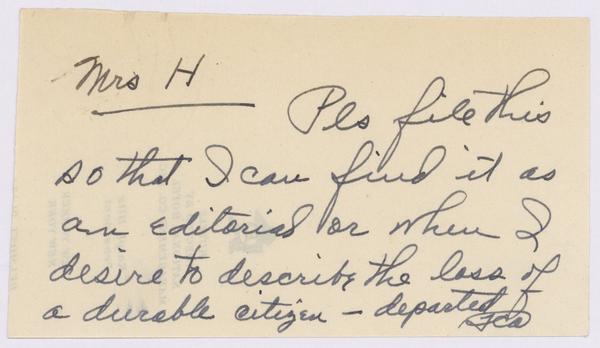 Mrs H
Pls file this
so that I can find it as
an Editorial or when I
desire to describe the loss of
a durable citizen – departed